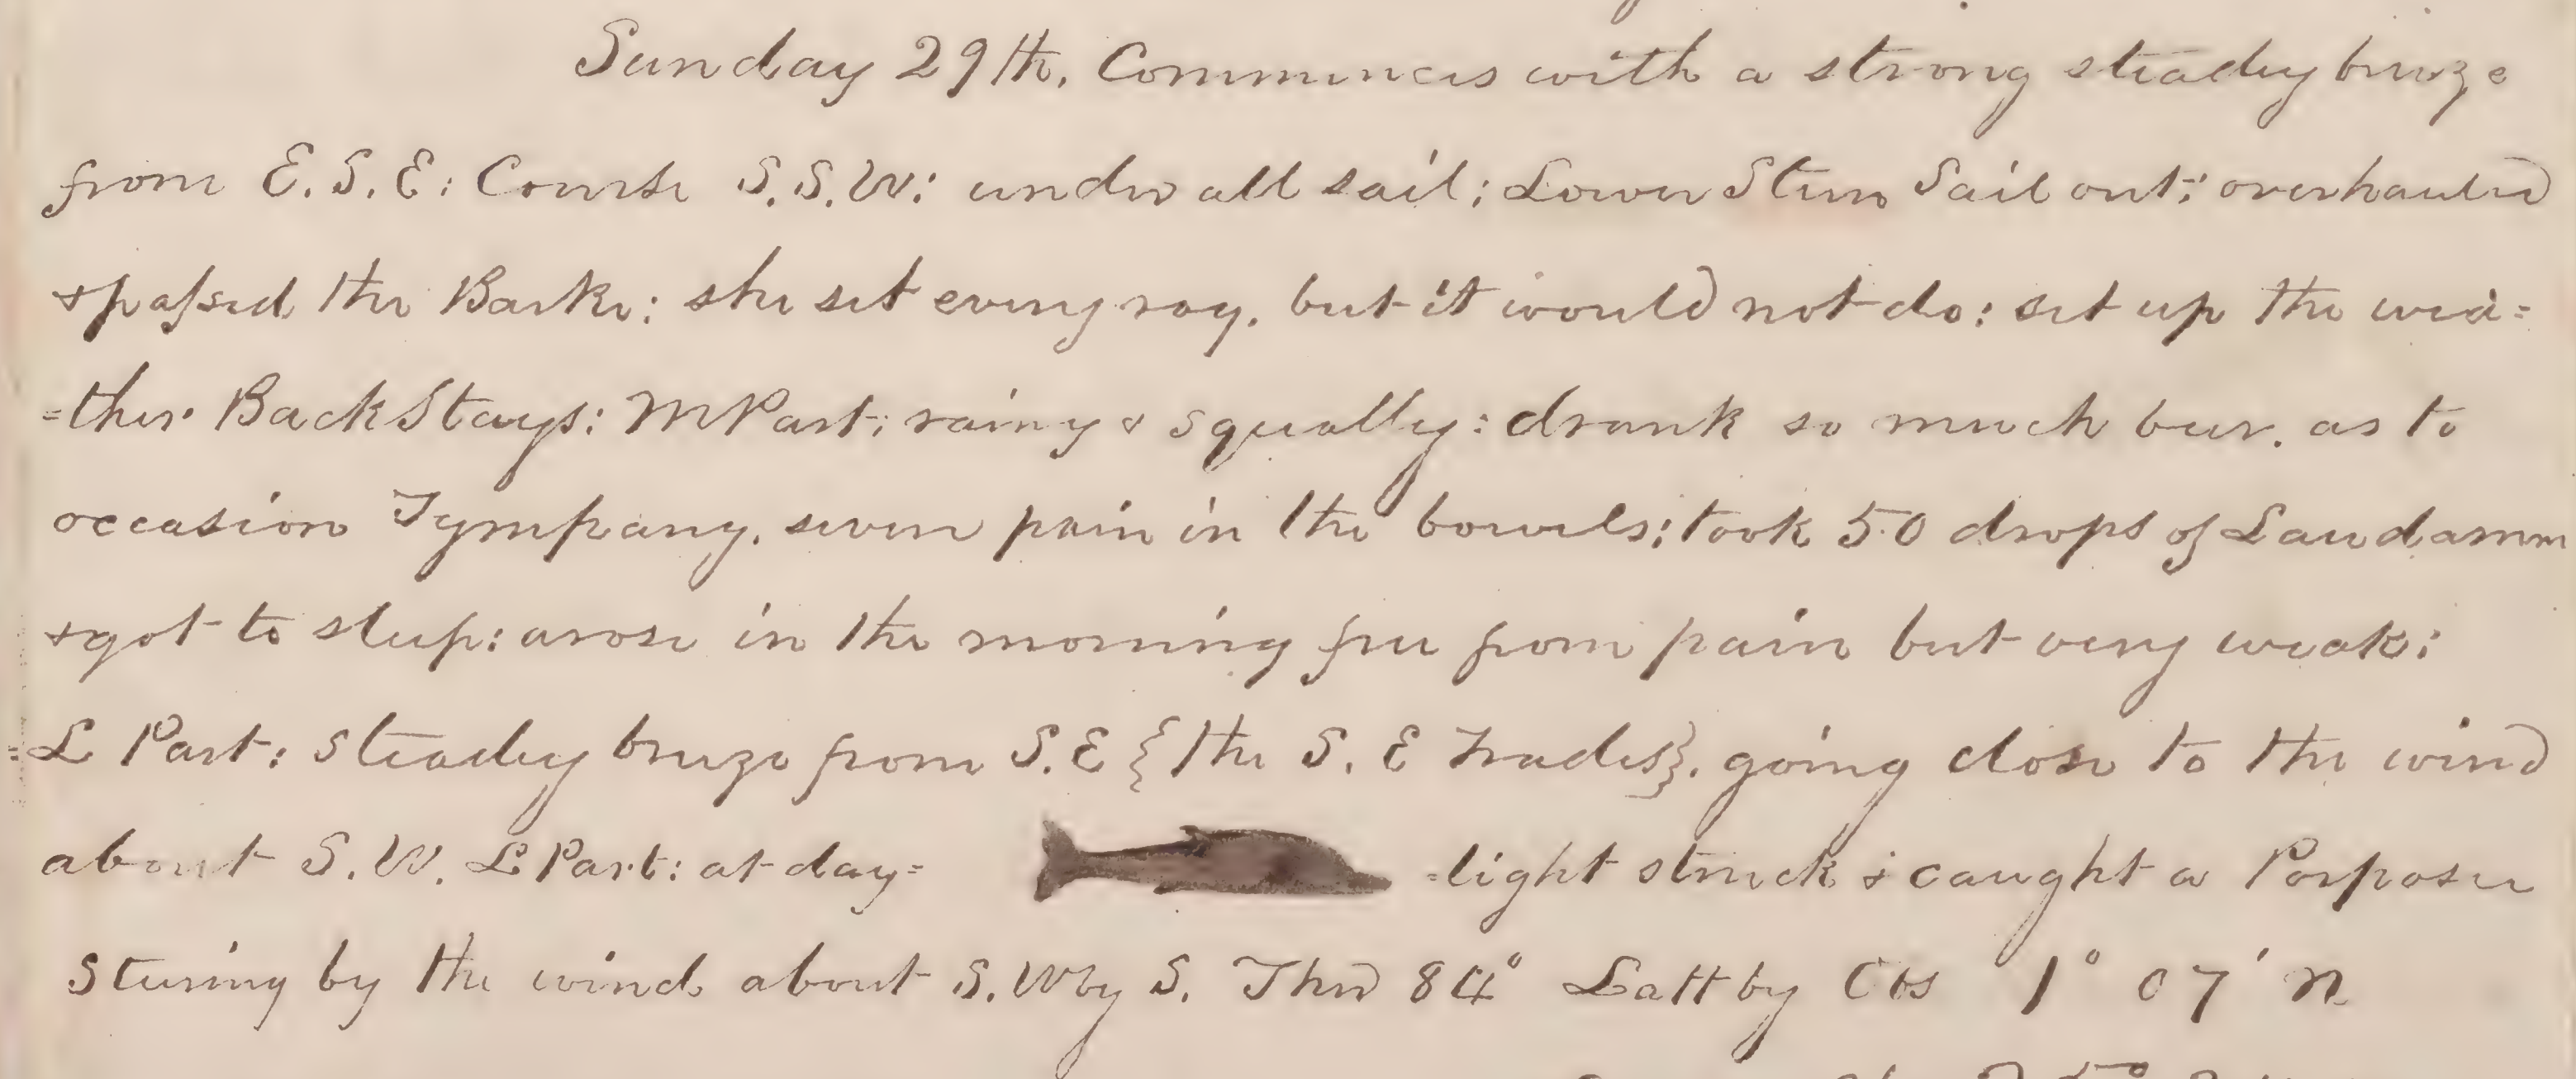 Sunday 29th. Commences with a strong steady breeze
from E.S.E: Course S.S.W: under all sail; Lower Stun Sail out; overhauled
& passed the Barke: she set every rag, but it would not do: set up the wea=
=ther Back Stays: M Part; rainy & squally: drank so much beer, as to
occasion Tympany, severe pain in the bowels; took 50 drops of Laudamm
& got to sleep: arose in the morning free from pain but very weak:
=L Part: steady breeze from S.E {the S. E Trades}, going close to the wind
about S.W. L Part: at day= =light struck & caught a Porpose
Steering by the wind about S. W by S. Thr 84° Latt by Obs 1° 07' N